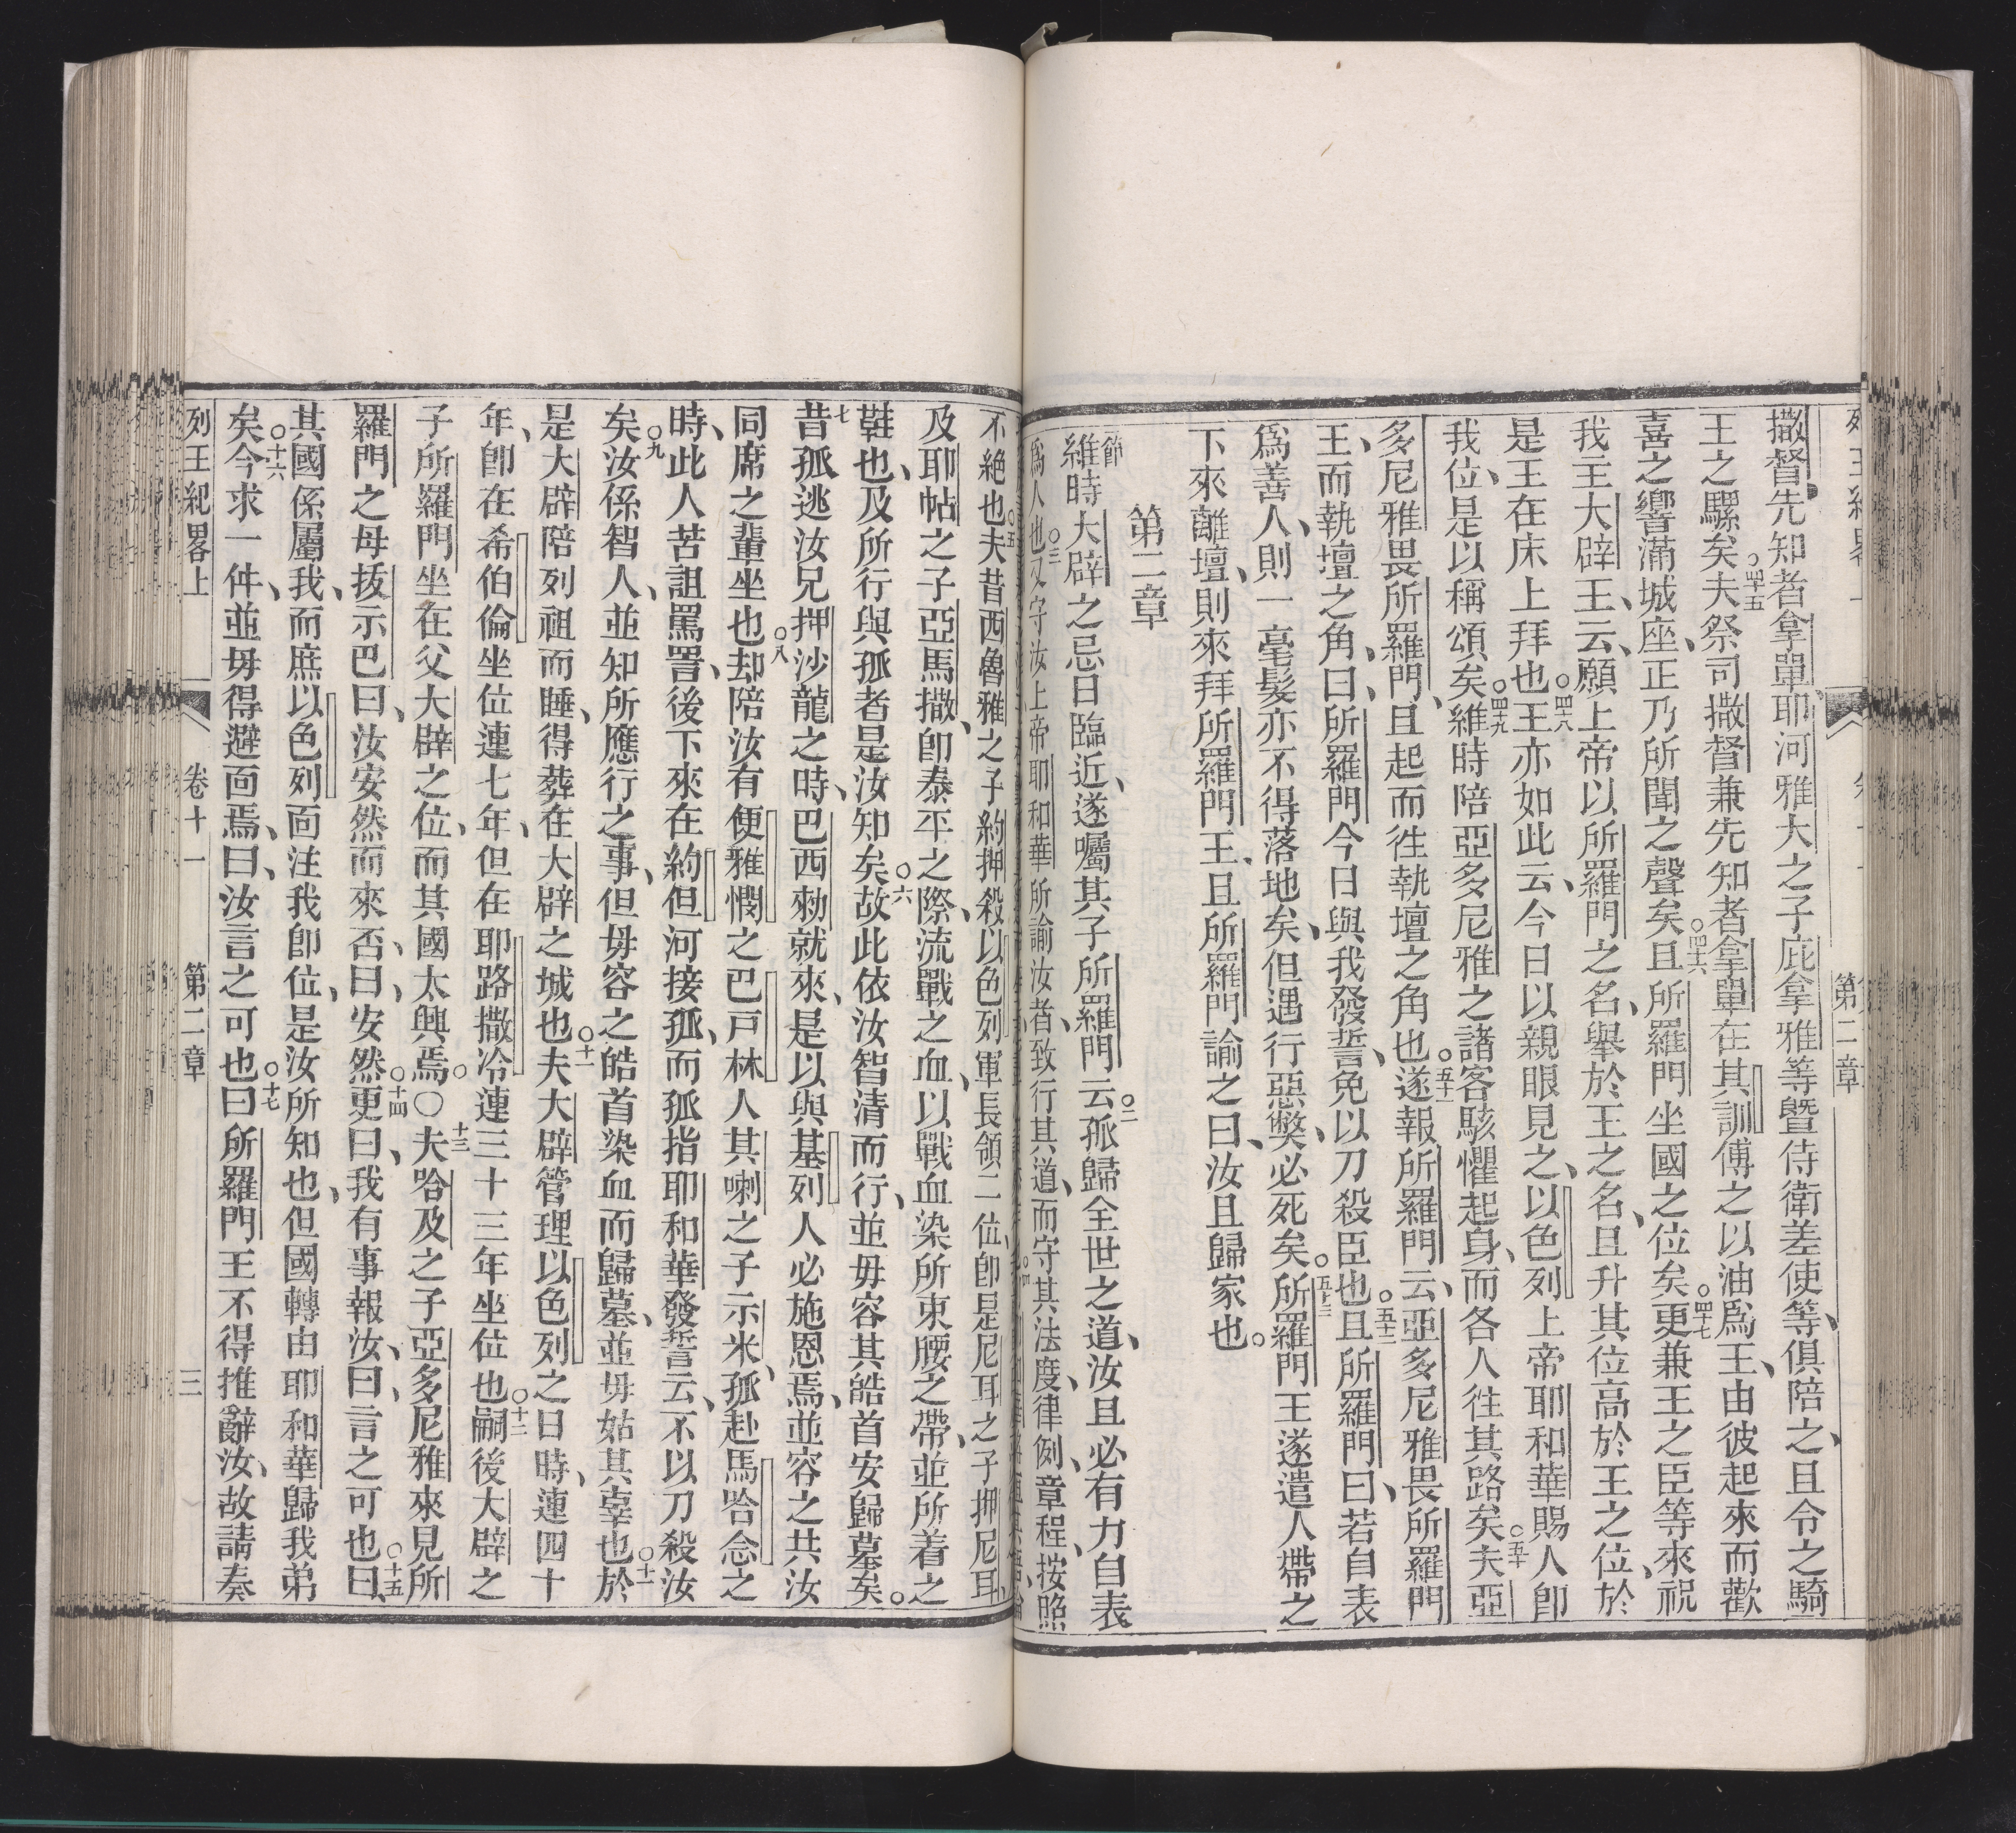 撒督先知者拿單耶河雅大之子庇拿雅等曁侍衛差使等、俱陪之、且令之騎
王之騾矣。四十五夫祭司撒督兼先知者拿單在其訓傅之以油爲王、由彼起來而歡
喜之響滿城座、正乃所聞之聲矣。四十六且所羅門坐國之位矣。四十七更兼王之臣等來祝
我王大辟王、云、願上帝以所羅門之名、舉於王之名、且升其位高於王之位、於
是王在床上拜也。四十八王亦如此云、今日以親眼見之、以色列上帝耶和華賜人卽
我位、是以稱頌矣。四十九維時陪亞多尼雅之諸客駭懼起身、而各人往其路矣。五十夫亞
多尼雅畏所羅門、且起而徃執壇之角也。五十一遂報所羅門云、亞多尼雅畏所羅門
王、而執壇之角、曰、所羅門今日與我發誓、免以刀殺臣也。五十二且所羅門曰、若自表
爲善人、則一毫髮亦不得落地矣、但遇行惡獘、必死矣。五十三所羅門王遂遣人帶之
下來離壇、則來拜所羅門王、且所羅門諭之曰、汝且歸家也。
第二章
節維時大辟之忌日臨近、遂囑其子所羅門云。二孤歸全世之道、汝且必有力自表
爲人也。三又守汝上帝耶和華所諭汝者、致行其道、而守其法度、律例、章程、按照
不絕也。五夫昔西魯雅之子約押殺以色列軍長領二位、卽是尼耳之子押尼耳、
及耶帖之子亞馬撒、卽泰平之際、流戰之血、以戰血染所束腰之帶、並所着之
鞋也、及所行與孤者是汝知矣。六故此依汝智清而行、並毋容其皓首安歸墓矣。
七昔孤逃汝兄押沙龍之時、巴西勑就來、是以與基列人必施恩焉、並容之共汝
同席之輩坐也。八却陪汝有便雅憫之巴戸林人其喇之子示米、孤赴馬哈念之
時、此人苦詛罵詈、後下來在約但河接孤、而孤指耶和華發誓云、不以刀殺汝
矣。九汝係智人、並知所應行之事、但毋容之皓首染血而歸墓、並毋姑其辜也。十於
是大辟陪列祖而睡、得葬在大辟之城也。十一夫大辟管理以色列之日時、連四十
年、卽在希伯倫坐位連七年、但在耶路撒冷連三十三年坐位也。十二嗣後大辟之
子所羅門坐在父大辟之位、而其國太興焉。○十三夫哈及之子亞多尼雅來見所
羅門之母拔示巴曰、汝安然而來否、曰、安然。十四更曰、我有事報汝、曰、言之可也。十五曰、
其國係屬我、而庶以色列面注我卽位、是汝所知也、但國轉由耶和華歸我弟
矣。十六今求一件、並毋得避面焉、曰、汝言之可也。十七曰所羅門王不得推辭汝、故請奏
列王紀畧上 卷十一 第二章 三